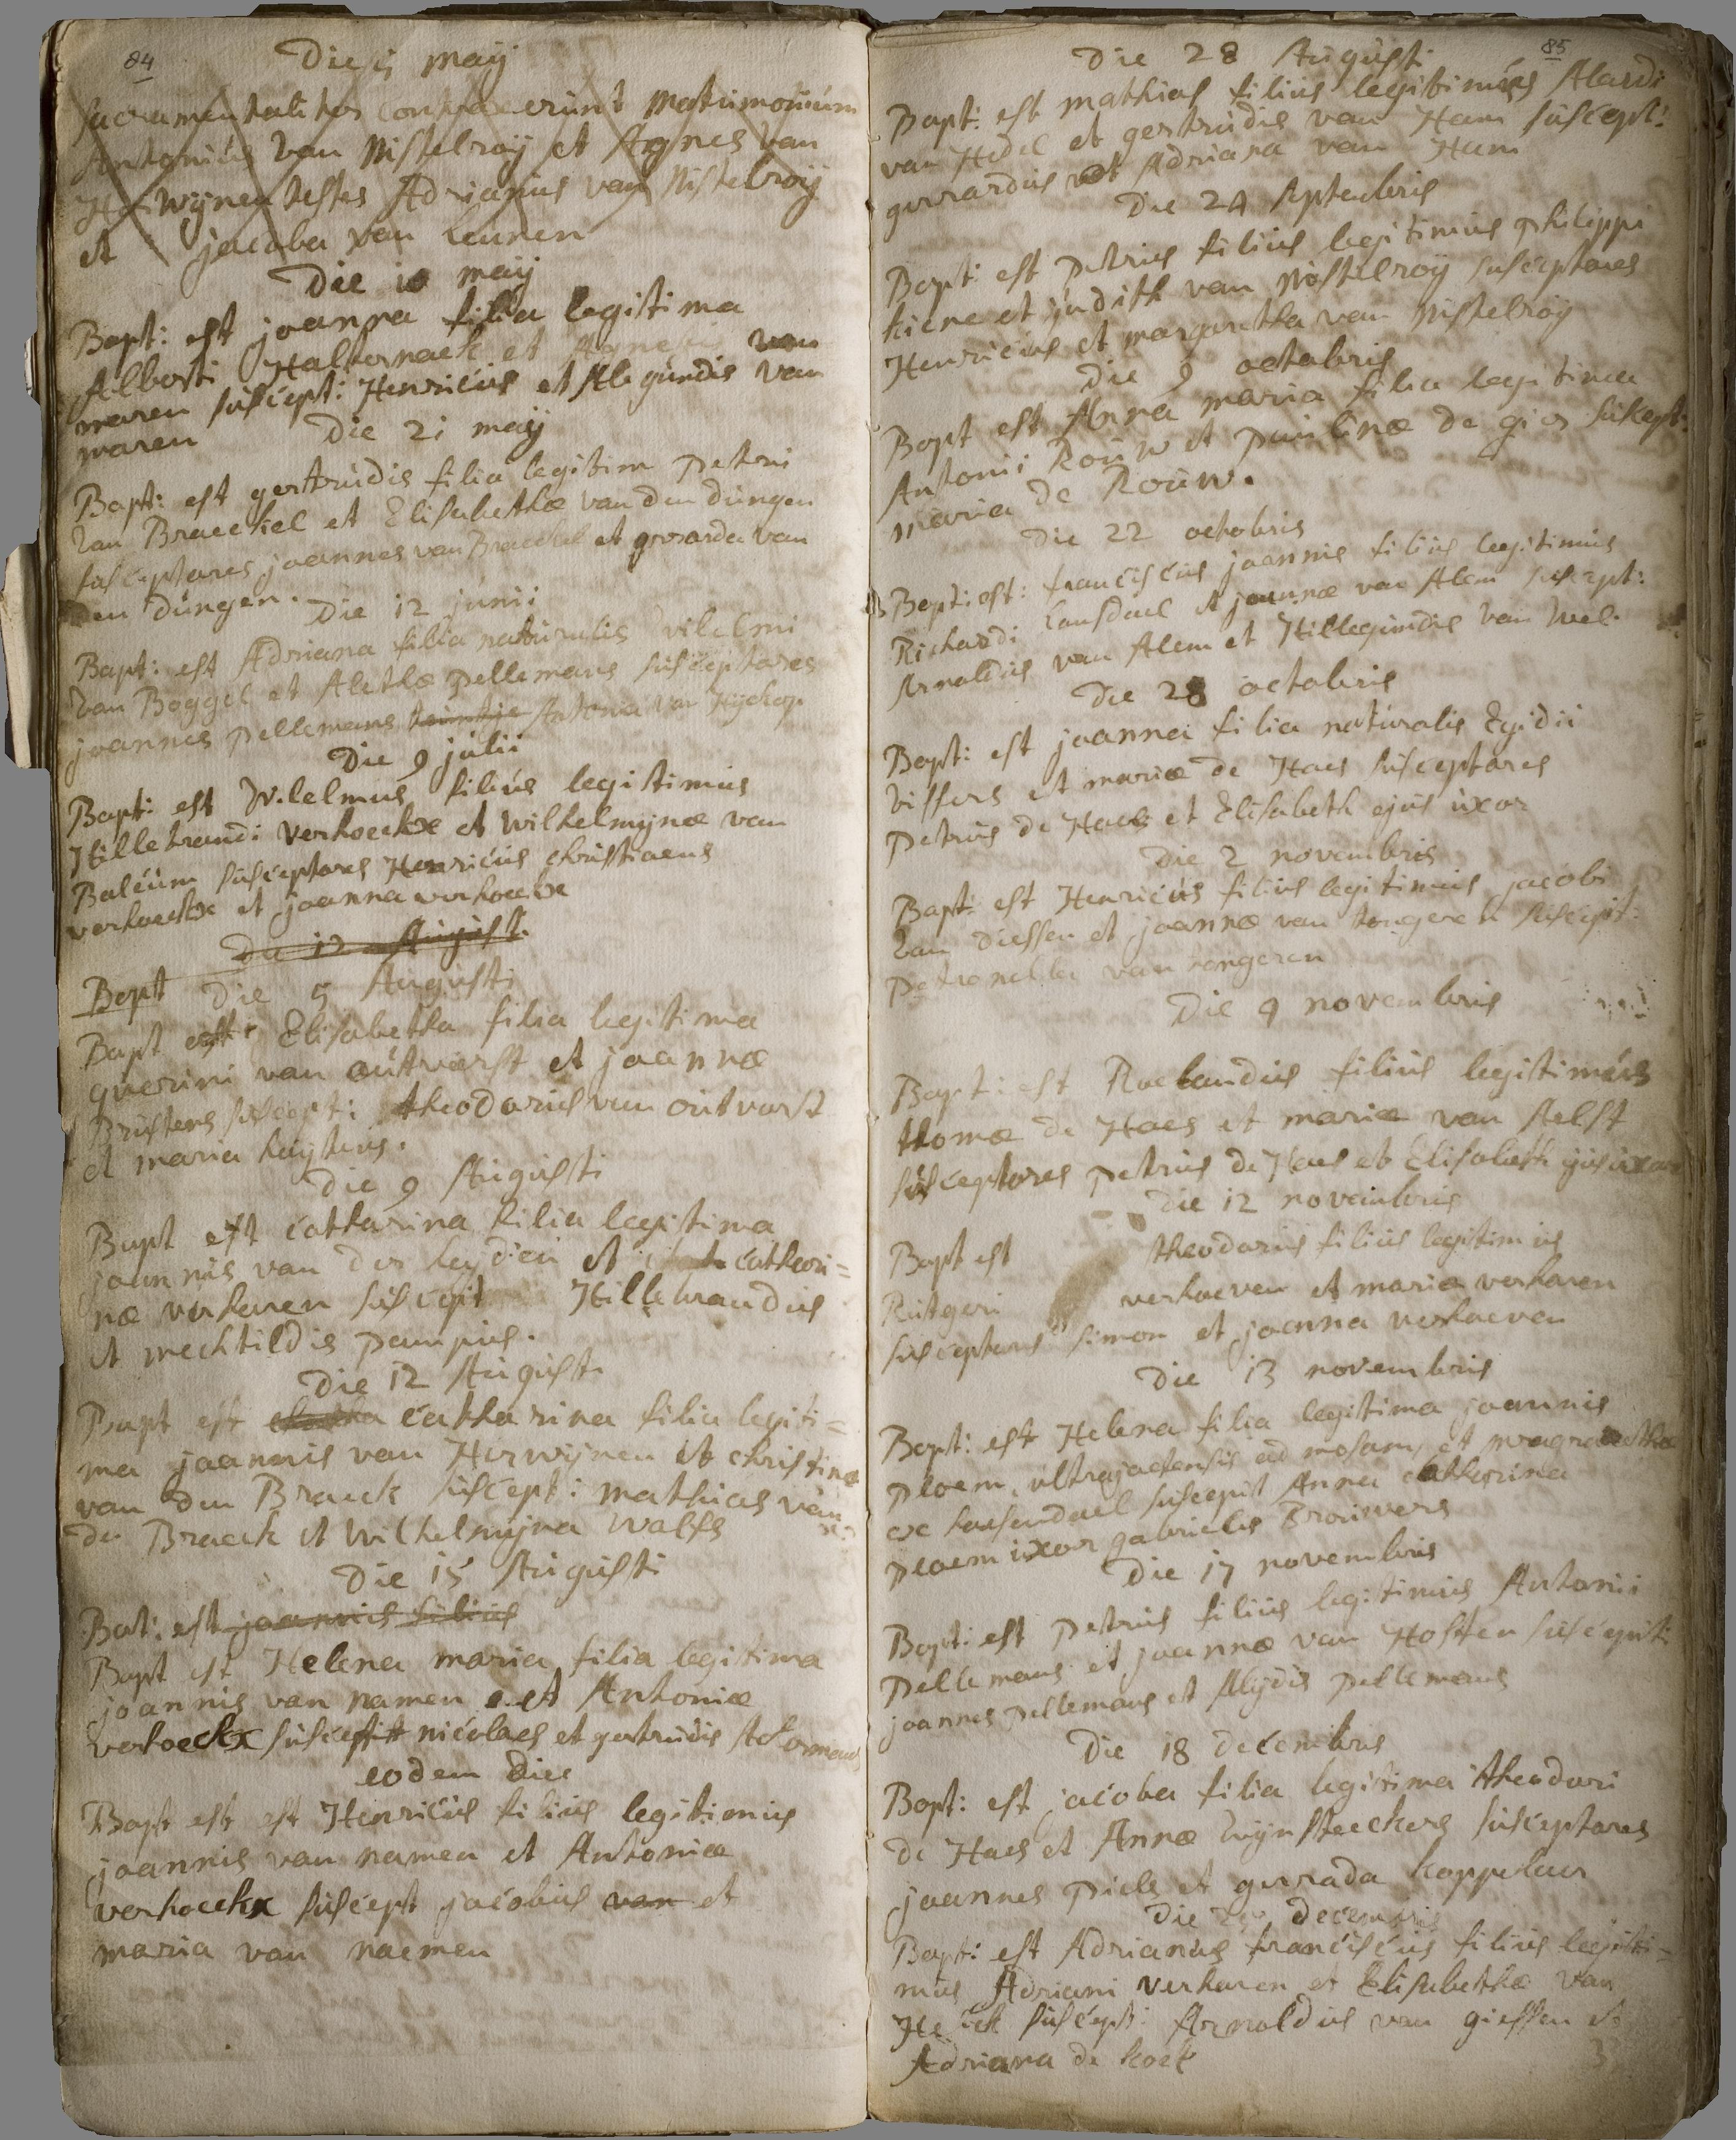 84
Die 5 maij
sacramentaliter contraxerunt matrimonium
Antonius van Nistelroij et Agnes van
Herwijnen testes Adrianus van Nistelroij
et jacoba van Leunen
Die 10 maij
Bapt: est joanna filia legitima
Alberti Halternack et Agnetis van
maren suscept: Henricus et Alegundis van
maren
Die 21 maij
Bapt: est gertrudis filia legitim petri
van Braeckel et Elisabethæ van den dungen
susceptores joannes van Braeckel et gerarda van
den dungen.
Die 12 junii
Bapt: est Adriana filia naturalis vilelmi
van Boggel et Alethæ pellemans susceptores
joannes pellemans Antonia van
Die 9 julii
Bapt: est Wilelmus filius legitimus
Hillebrandi verhoeckx et wilhelmijnæ van
Balcum susceptores Henricus christiaens
verhoeckx et joanna verhoeckx
Die 12 August.
Bapt Die 5 Augusti
Bapt est Elisabetha filia legitima
querini van outvorst et joannæ
Brusters suscept: theodorus van outvorst
et maria huijtens.
Die 9 Augusti
Bapt est catharina filia legitima
joannis van der heijden et cathari=
næ verharen suscept Hillebrandus
et mechtildis pampus.
Die 12 August.
Bapt est catharina filia legiti=
ma joannis van Herwijnen et christinæ
van den Braeck suscept: mathias van
de Braeck et wilhelmijna walfs
Die 15 Augusti
Bat: est joannis filius
Bapt est Helena maria filia legitima
joannis van namen et Antoniæ
verhoeckx suscept nicolaes et gertrudis
eodem die
Bapt est est Henricus filius legitimus
joannis van namen et Antoniæ
verhoeckx suscept jacobus van et
maria van naemen
85
Die 28 Augusti
Bapt: est mathias filius legitimus Alardi
van Hedel et gertrudis van Ham suscept:
gerardus et Adriana van Ham
Die 24 septembris
Bapt: est petrus filius legitimus philippi
kiene et judith van Nistelroij susceptores
Henricus et margaretha van Nistelroij
Die 9 octobris
Bapt est Anna maria filia legitima
Antonii Rouw et paulinæ de suscept:
maria de Rouw.
Die 22 octobris
Bapt: est: franciscus joannis filius legitimus
Richardi Lansdael et joannæ van Alem suscept:
Arnoldus van Alem et Hillegundis van wel.
Die 28 octobris
Bapt: est joanna filia naturalis Egidii
vissers et mariæ de Haes susceptores
petrus de Haes et Elisabeth ejus uxor
Die 2 novembris
Bapt: est Henricus filius legitimus jacobi
van diessen et joannæ van tongeren suscepit:
petronella van tongeren
Die 9 novembris
Bapt: est Roelandus filius legitimus
thomæ de Haes et mariæ van stelst
susceptores petrus de Haes et Elisabeth ejus uxor
Die 12 novembris
Bapt est theodorus filius legitimus
Rutgeri verhoeven et mariæ verharen
susceptores simon et joanna verhoeven
Die 13 novembris
Bapt: est Helena filia legitima joannis
ploem, ultrajactensis ad mosam, et margarethæ
ex suscepit Anna catharina
ploem uxor gabrielis Brouwers
Die 17 novembris
Bapt: est petrus filius legitimus Antonii
pellemans et joannæ van Hosten suscepit:
joannes pellemans et Alijdis pellemans
Die 18 decembris
Bapt: est jacoba filia legitima theodori
de Haes et Annæ susceptores
joannes piels et gerrada koppelaer
Die decembris
Bapt: est Adrianus franciscus filius legiti=
mus Adriani verharen et Elisabethæ van
suscept: Arnoldus van giessen et
Adriana de kock